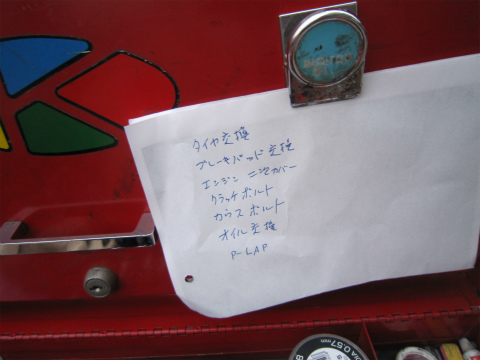 タイヤ交換
ブレーキパッド交換
エンジン 二次カバー
クラッチボルト
カウスボルト
オイル交換
P-LAP
0.57mm